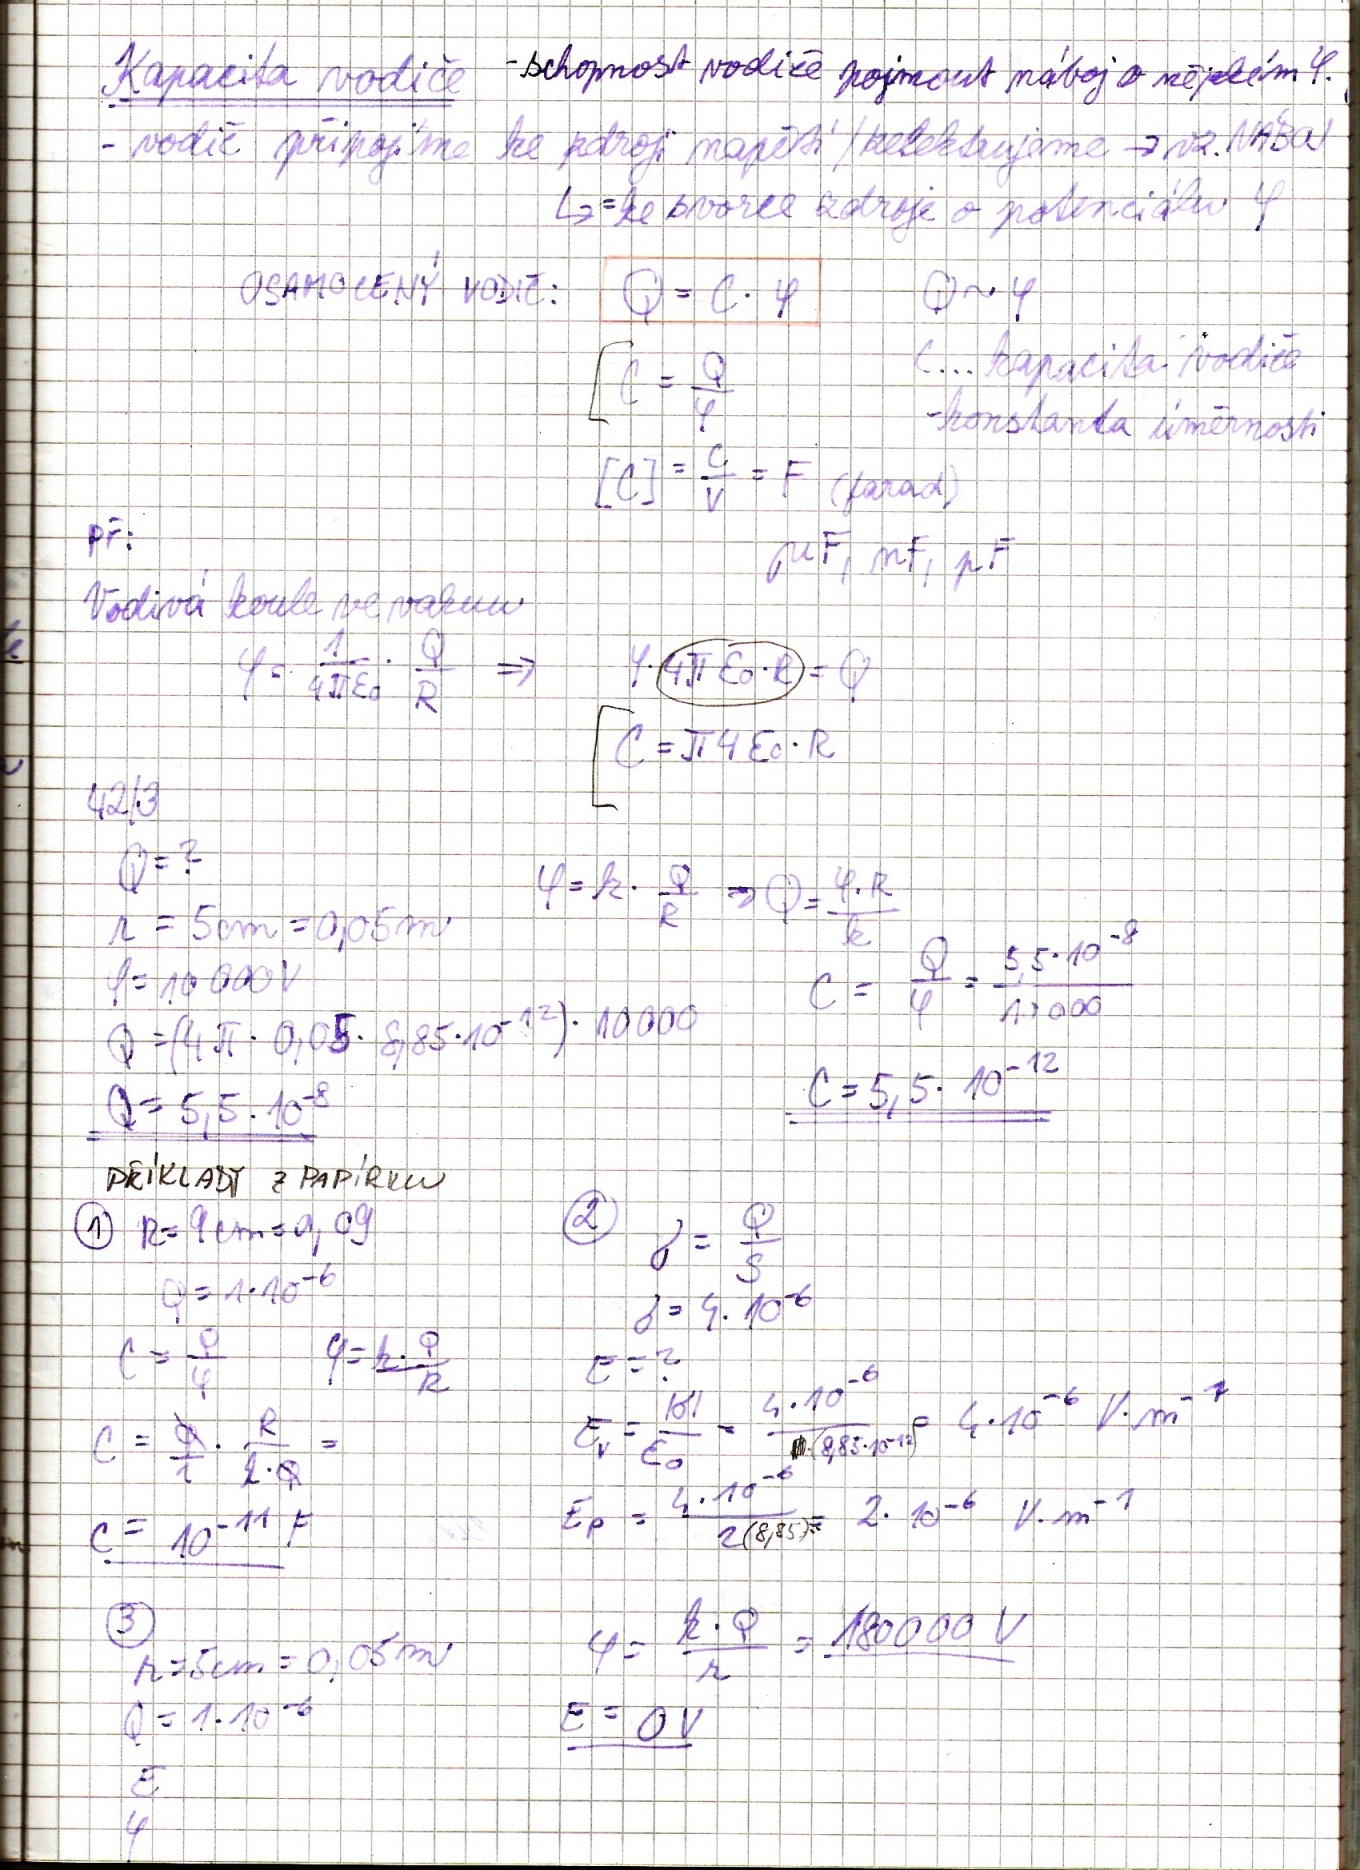 Kapacita vodiče - schopnost vodiče pojmout náboj o nějakém φ.
- vodič připojíme ke zdroji napětí / zelektrujeme → vz. NÁBOJ
↳ = ke svorce zdroje o potenciálu φ
OSAMOCENÝ VODIČ: Q = C · φ Q ~ φ
C = Q/φ C... kapacita vodiče
- konstanta úměrnosti
[C] = C/V = F (farad)
μF, nF, pF
PŘ:
Vodivá koule ve vakuu
φ = 1/4πε₀ · Q/R ⇒ φ · 4πε₀ · R = Q
C = π4ε₀ · R
42/3
Q = ?
φ = k · Q/R ⇒ Q = φ·R/k
r = 5cm = 0,05m
φ = 10 000V
C = Q/φ = 5,5·10⁻⁸/10000
Q = (4π · 0,05 · 8,85·10⁻¹²) · 10000
Q = 5,5 · 10⁻⁸
C = 5,5 · 10⁻¹²
PŘÍKLADY Z PAPÍRKU
① R = 9cm = 0,09
Q = 1·10⁻⁶
C = Q/φ φ = k·Q/R
C = Q/1 · R/k·Q =
C = 10⁻¹¹ F
② δ = Q/S
δ = 4·10⁻⁶
E = ?
Eᵥ = |δ|/ε₀ = 4·10⁻⁶/(8,85·10⁻¹²) = 4·10⁻⁶ V·m⁻¹
Eₚ = 4·10⁻⁶/2(8,85) = 2·10⁻⁶ V·m⁻¹
③
r = 5cm = 0,05m
Q = 1·10⁻⁶
E
φ
φ = k·Q/r = 180000 V
E = 0V